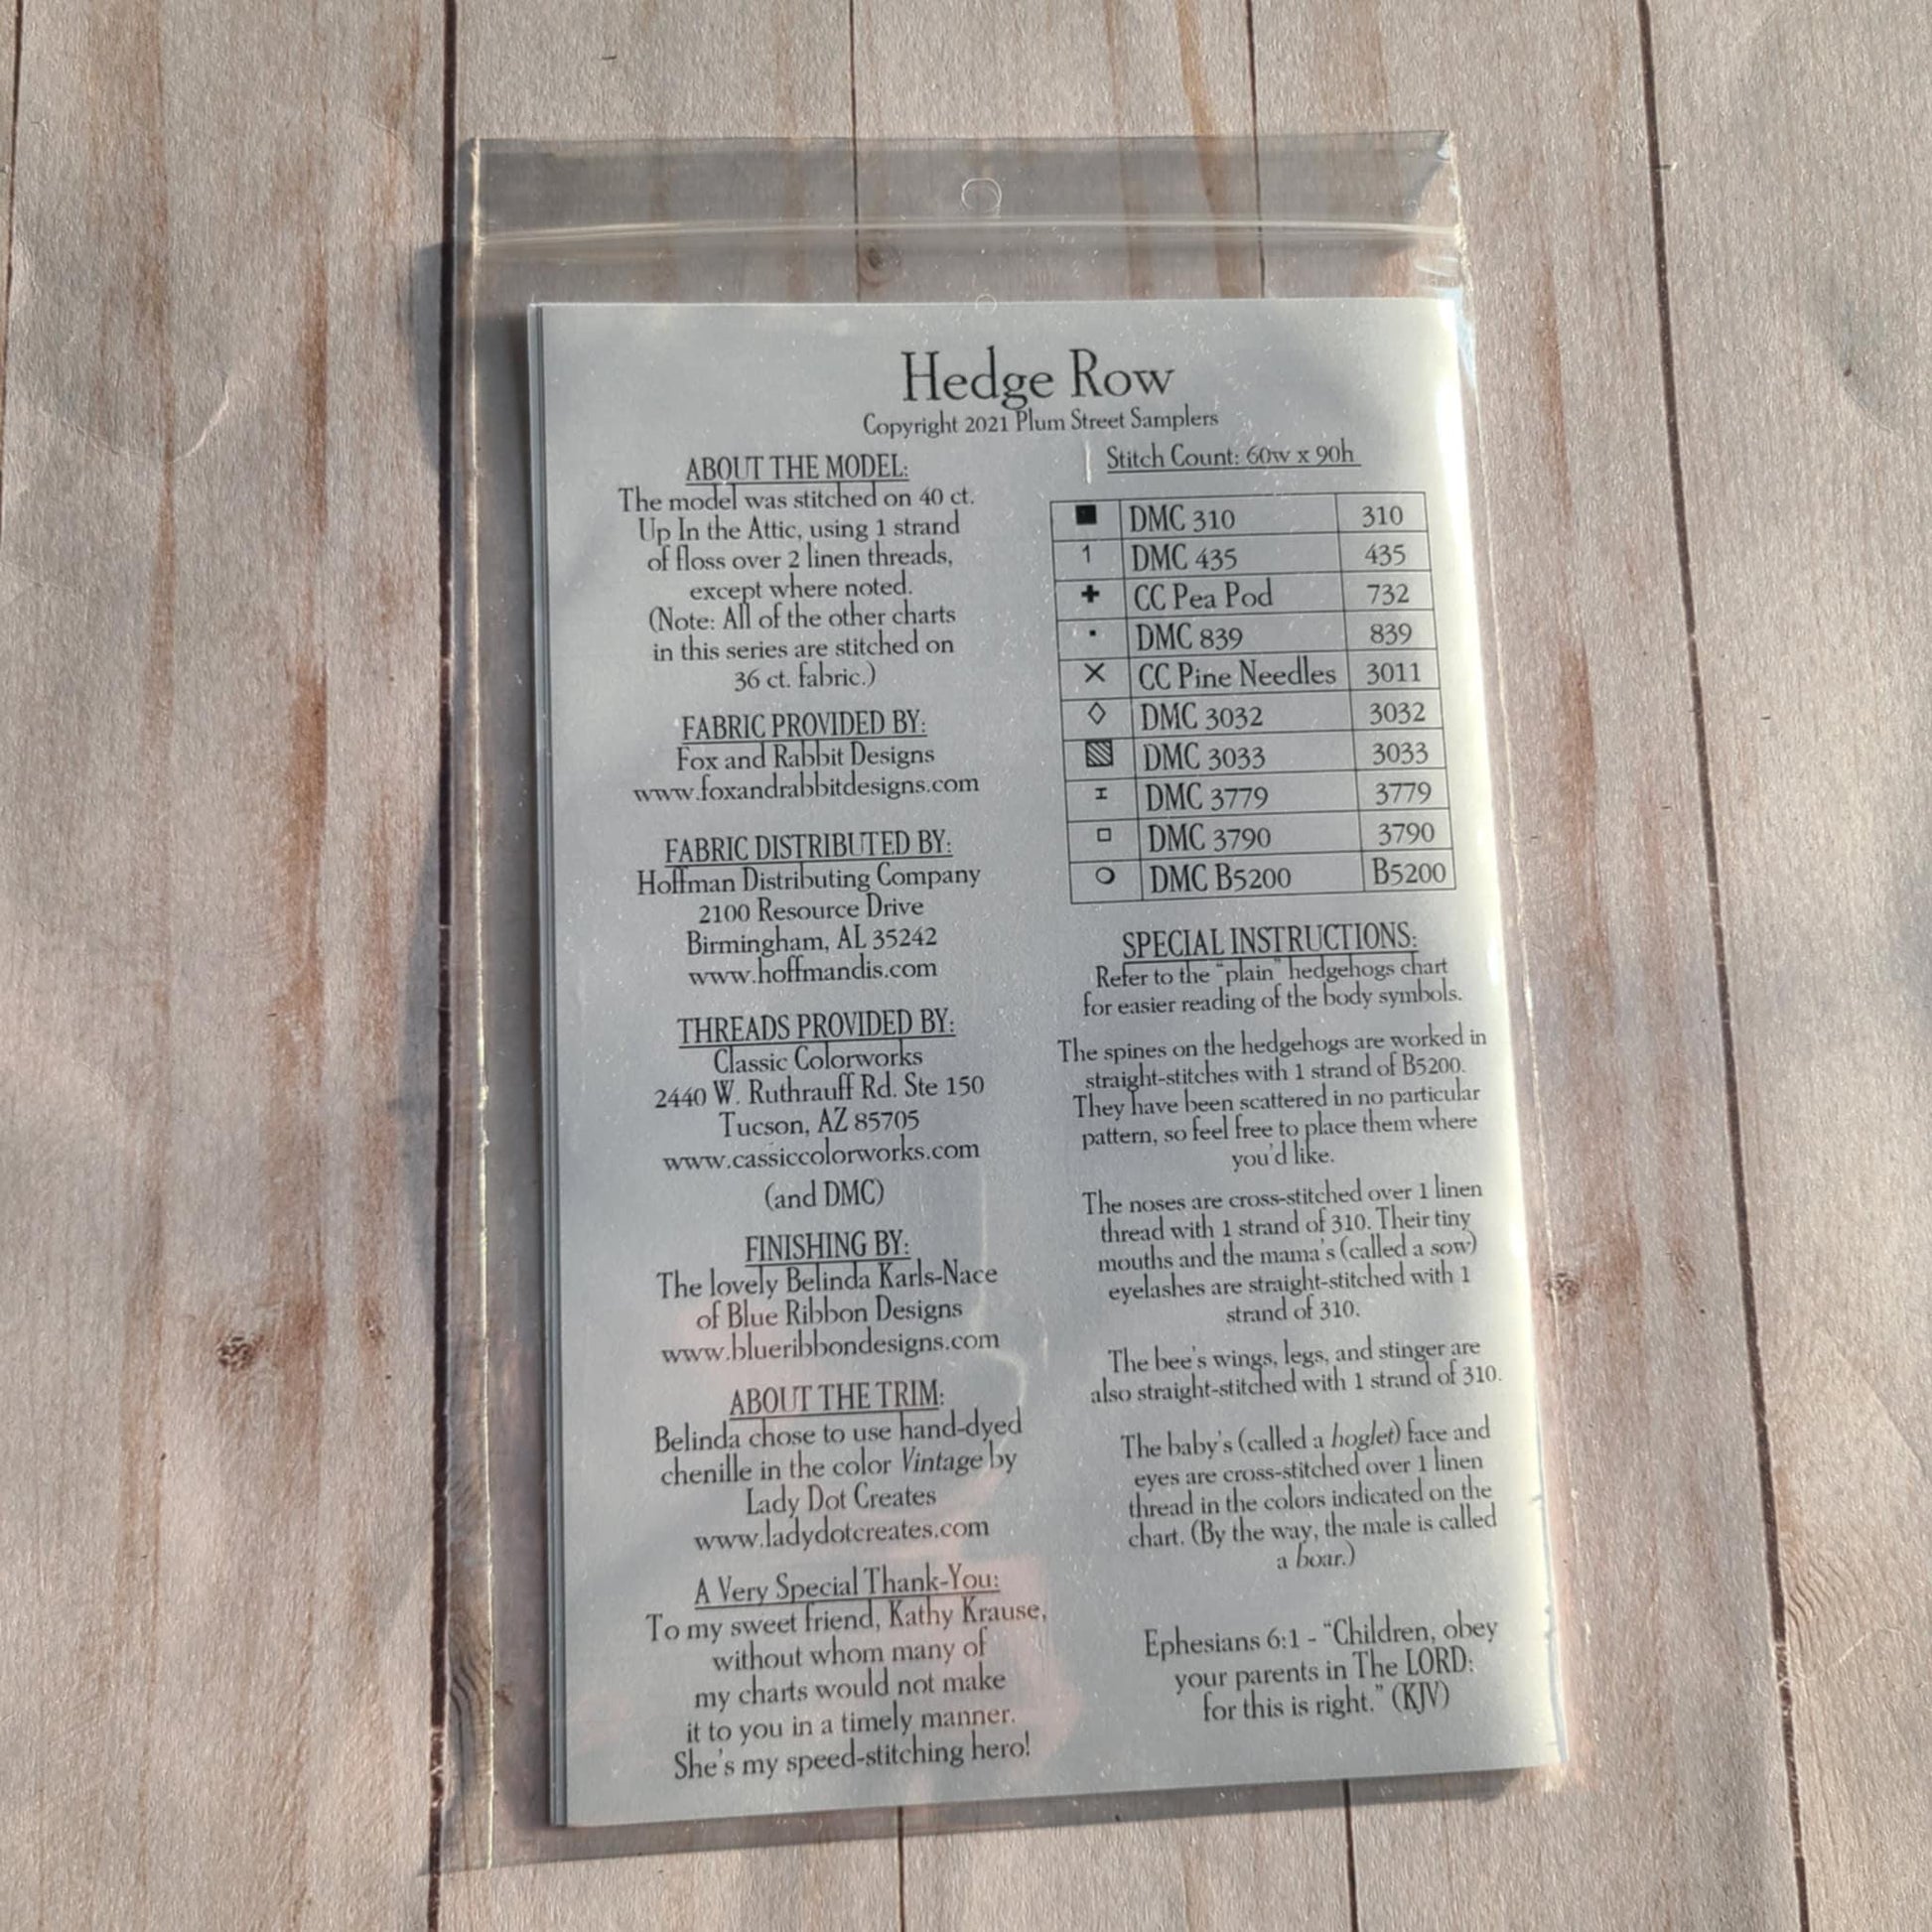 Hedge Row
Copyright 2021 Plum Street Samplers
ABOUT THE MODEL:
The model was stitched on 40 ct.
Up In the Attic, using 1 strand
of floss over 2 linen threads,
except where noted.
(Note: All of the other charts
in this series are stitched on
36 ct. fabric.)
FABRIC PROVIDED BY:
Fox and Rabbit Designs
www.foxandrabbitdesigns.com
FABRIC DISTRIBUTED BY:
Hoffman Distributing Company
2100 Resource Drive
Birmingham, AL 35242
www.hoffmandis.com
THREADS PROVIDED BY:
Classic Colorworks
2440 W. Ruthrauff Rd. Ste 150
Tucson, AZ 85705
www.cassiccolorworks.com
(and DMC)
FINISHING BY:
The lovely Belinda Karls-Nace
of Blue Ribbon Designs
www.blueribbondesigns.com
ABOUT THE TRIM:
Belinda chose to use hand-dyed
chenille in the color Vintage by
Lady Dot Creates
www.ladydotcreates.com
A Very Special Thank-You:
To my sweet friend, Kathy Krause,
without whom many of
my charts would not make
it to you in a timely manner.
She's my speed-stitching hero!
Stitch Count: 60w x 90h
■ DMC 310 310
1 DMC 435 435
✚ CC Pea Pod 732
▪ DMC 839 839
✕ CC Pine Needles 3011
◇ DMC 3032 3032
▧ DMC 3033 3033
⌶ DMC 3779 3779
□ DMC 3790 3790
○ DMC B5200 B5200
SPECIAL INSTRUCTIONS:
Refer to the "plain" hedgehogs chart
for easier reading of the body symbols.
The spines on the hedgehogs are worked in
straight-stitches with 1 strand of B5200.
They have been scattered in no particular
pattern, so feel free to place them where
you'd like.
The noses are cross-stitched over 1 linen
thread with 1 strand of 310. Their tiny
mouths and the mama's (called a sow)
eyelashes are straight-stitched with 1
strand of 310.
The bee's wings, legs, and stinger are
also straight-stitched with 1 strand of 310.
The baby's (called a hoglet) face and
eyes are cross-stitched over 1 linen
thread in the colors indicated on the
chart. (By the way, the male is called
a boar.)
Ephesians 6:1 - "Children, obey
your parents in The LORD:
for this is right." (KJV)